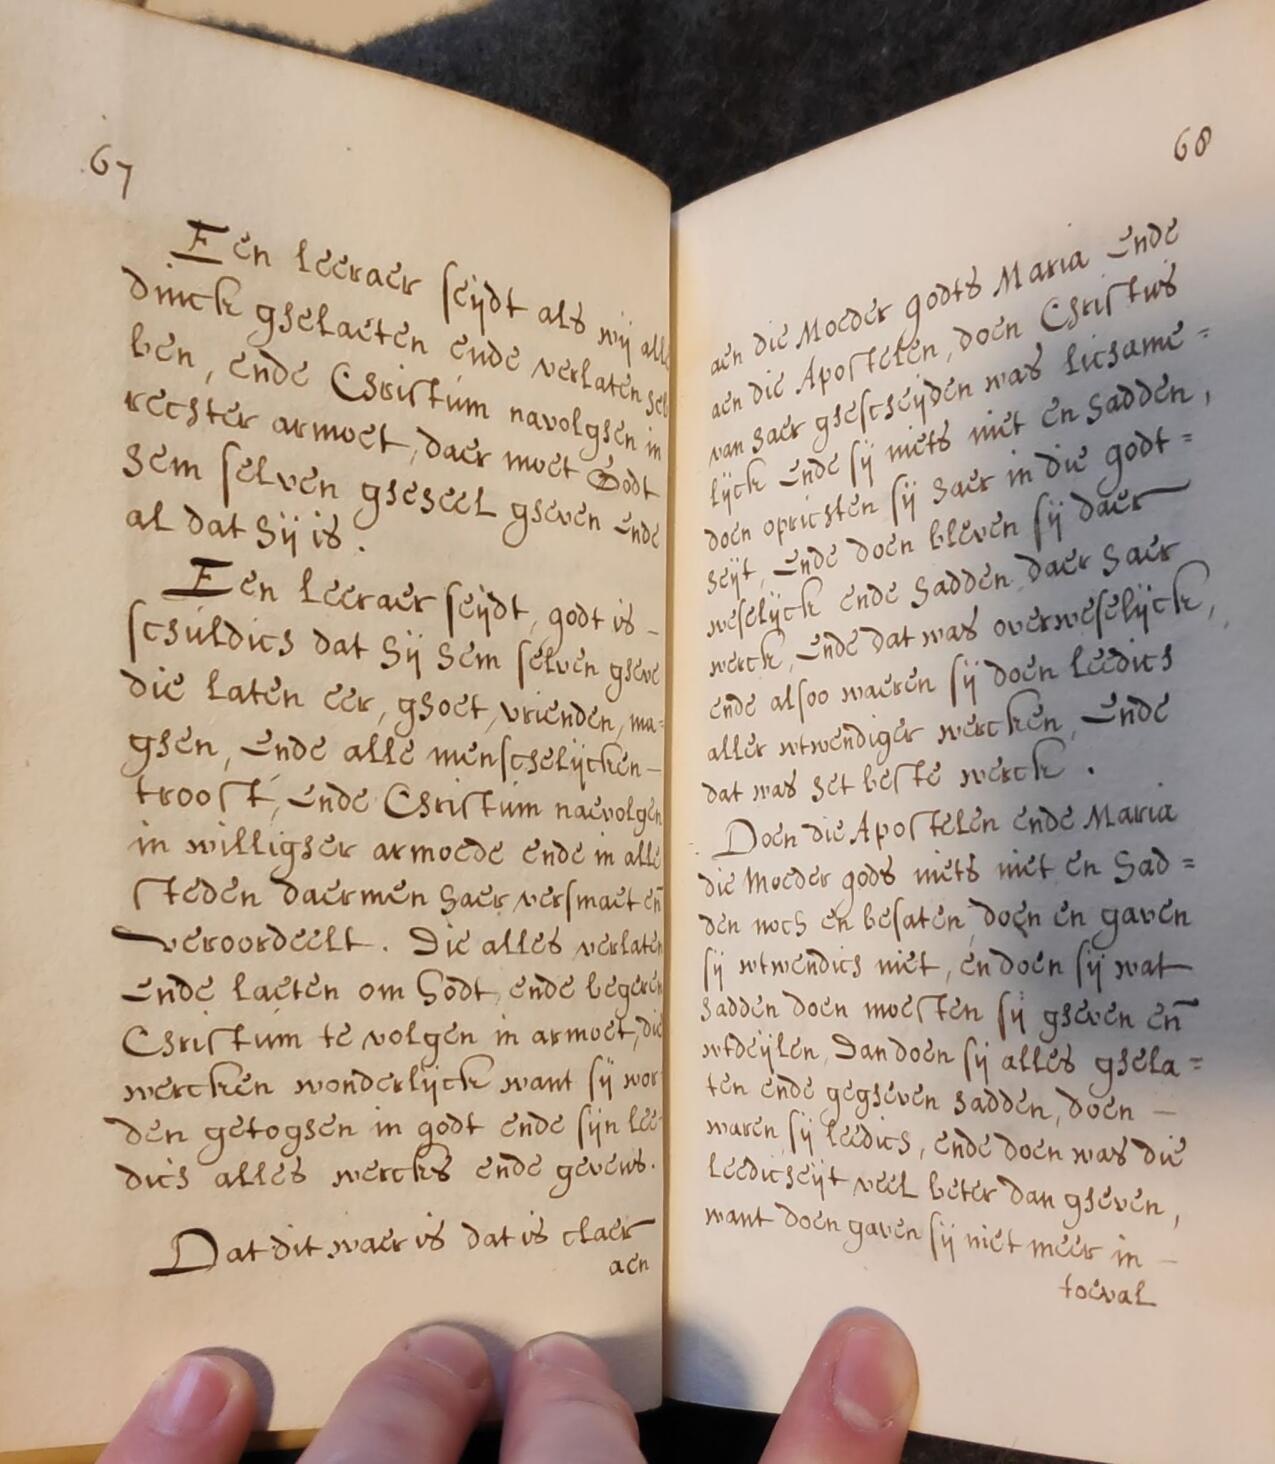 67
Een leeraer seijdt als wij alle
dinck ghelaeten ende verlaten heb
ben, ende Christum navolghen in
rechter armoet, daer moet Godt
hem selven gheheel gheven ende
al dat hij is.
Een leeraer seijdt, godt is -
schuldich dat hij hem selven gheve
die laten eer, ghoet, vrienden, ma-
ghen, ende alle menschelijcken -
troost, ende Christum naevolgen
in willigher armoede ende in alle
steden daermen haer versmaet en̄
veroordeelt. Die alles verlaten
ende laeten om Godt, ende begeren
Christum te volgen in armoet, die
wercken wonderlijck want sij wor-
den getoghen in godt ende sijn lee-
dich alles wercks ende gevens.
Dat dit waer is dat is claer
aen
68
aen die Moeder godts Maria ende
aen die Apostelen, doen Christus
van haer ghescheijden was lichame=
lijck ende sij niets niet en hadden,
doen oprichten sij haer in die godt=
heijt, ende doen bleven sij daer
weselijck ende hadden daer haer
werck, ende dat was overweselijck,
ende alsoo waeren sij doen leedich
aller wtwendiger wercken, ende
dat was het beste werck.
Doen die Apostelen ende Maria
die Moeder gods niets niet en had=
den noch en besaten, doen en gaven
sij wtwendich niet, en doen sij wat
hadden doen moesten sij gheven en̄
wtdeijlen, Dan doen sij alles ghela=
ten ende gegheven hadden, doen -
waren sij leedich, ende doen was die
leedicheijt veel beter dan gheven,
want doen gaven sij niet meer in -
toeval